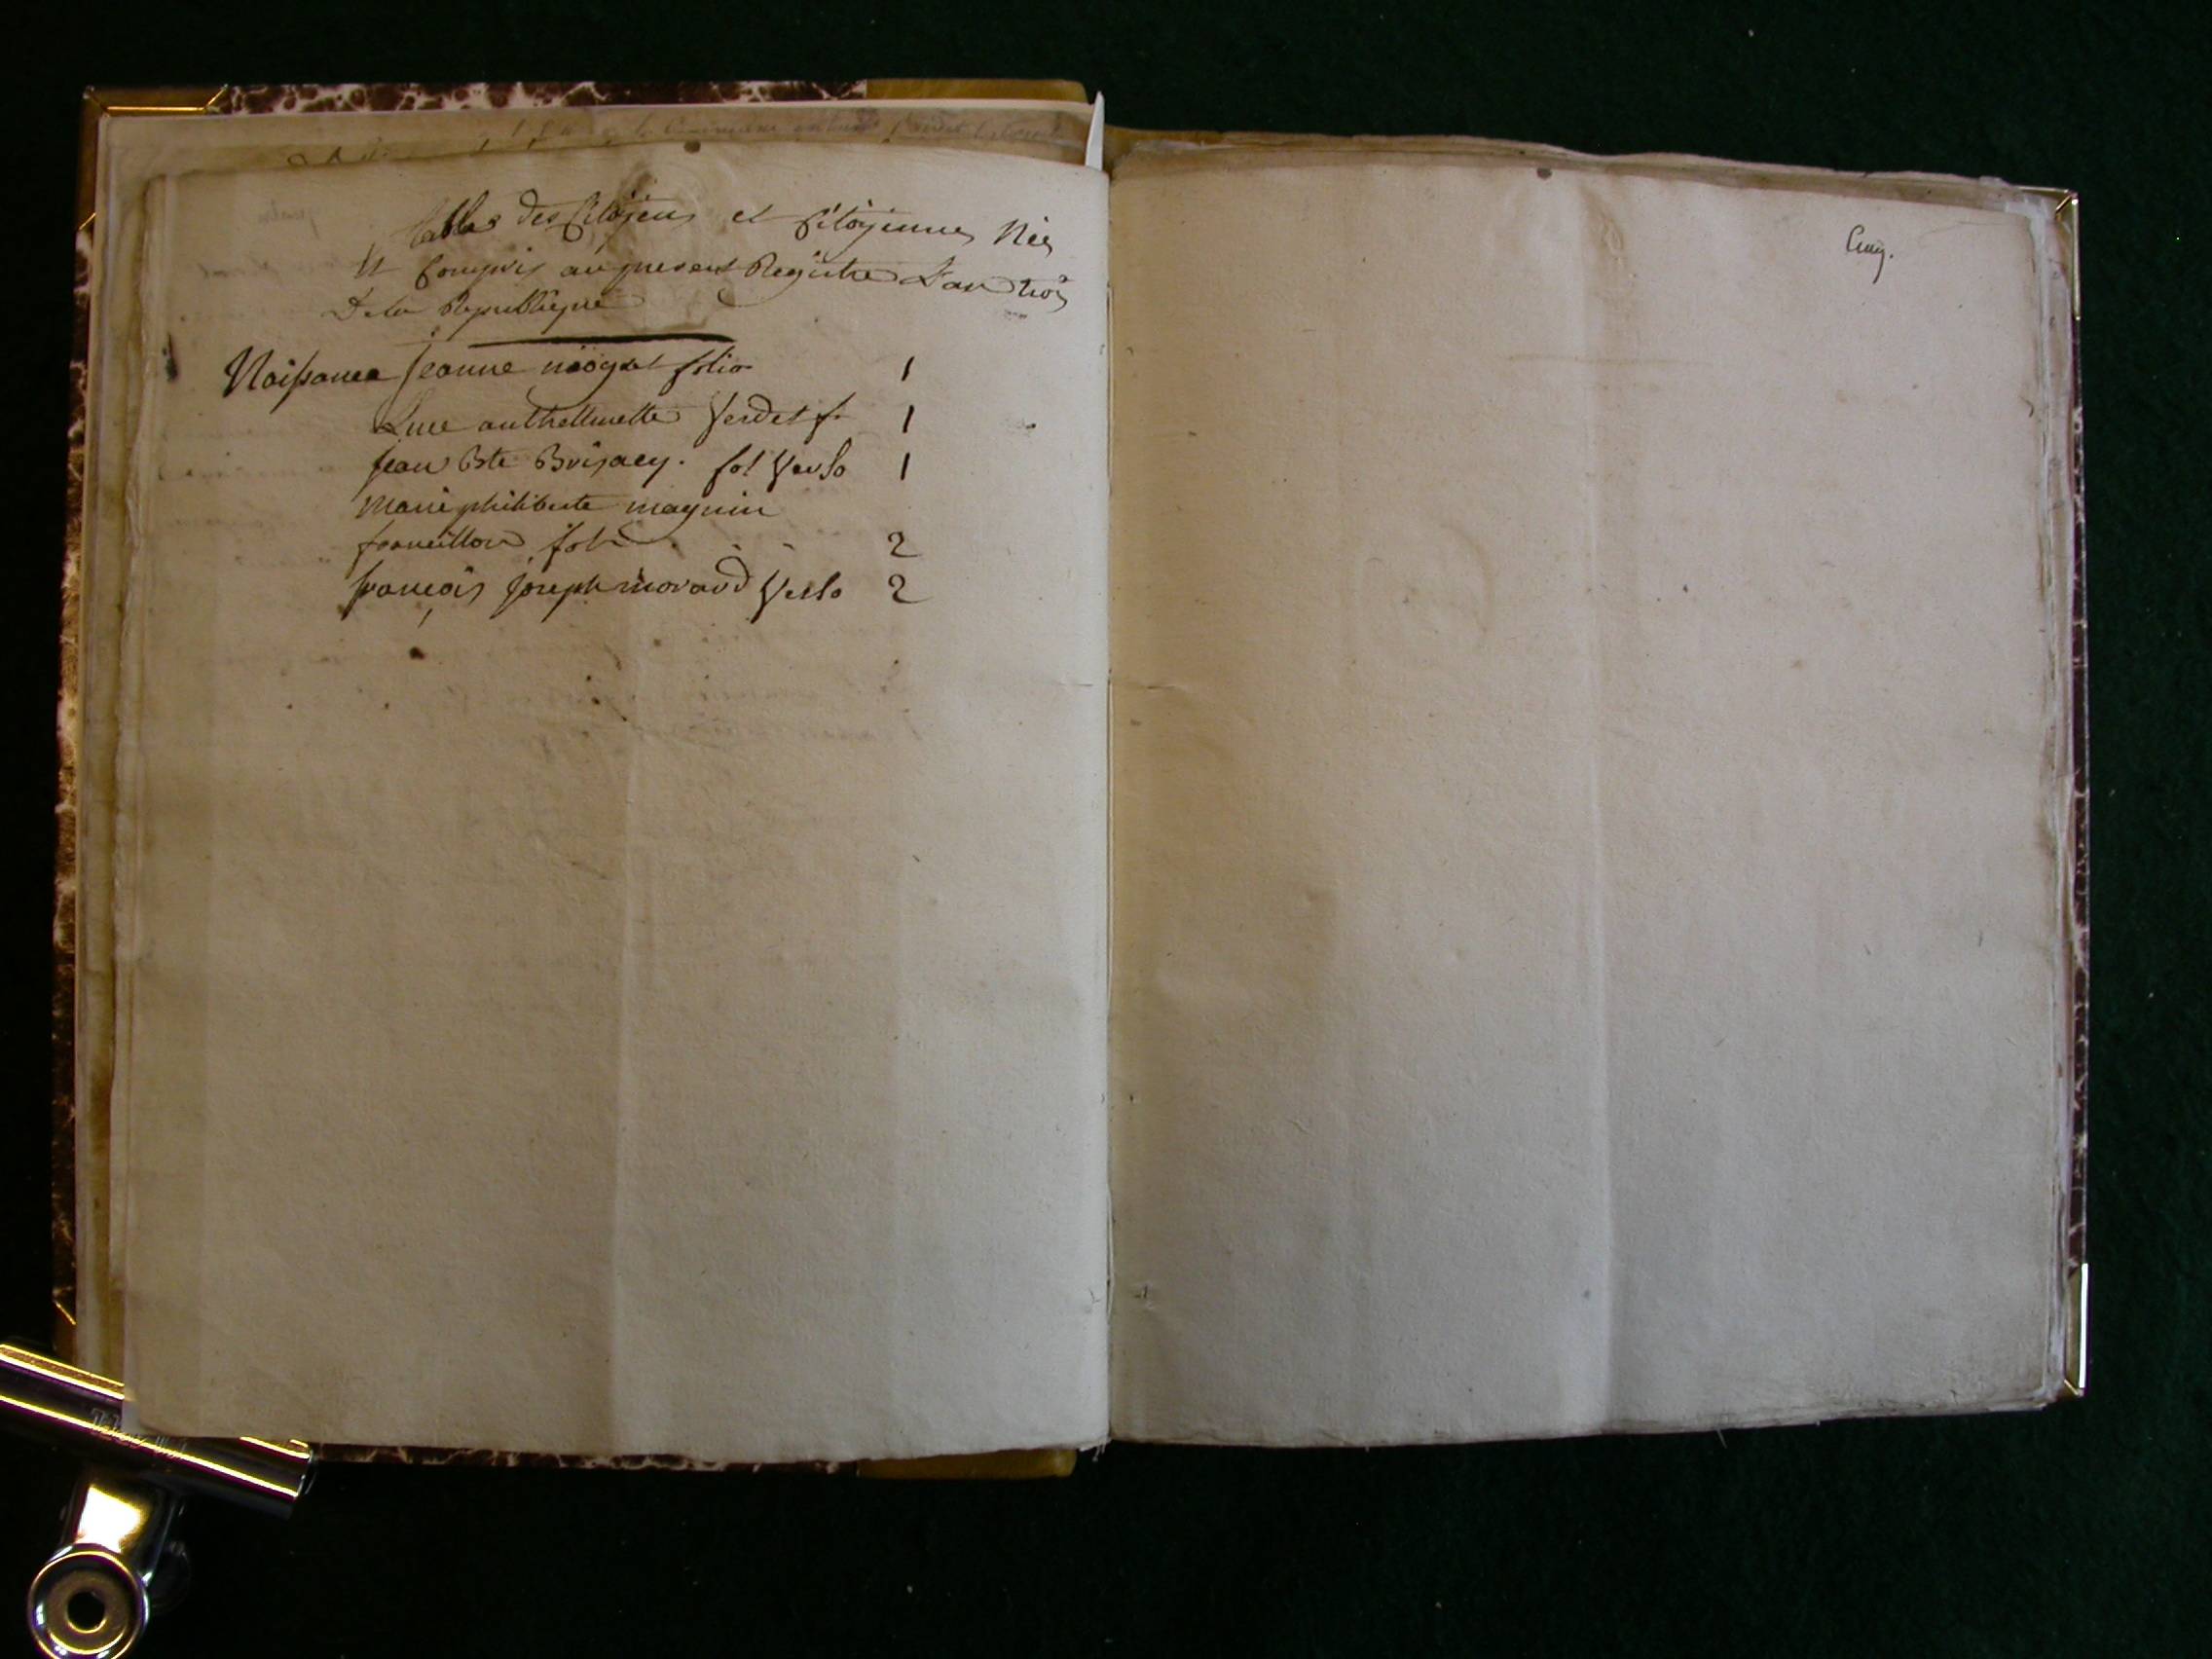 Table des Citoyens et Citoyennes Nés
et Compris au present Registre L'an trois
De la Republique
Naissance Jeanne folio 1
Luce anthelmette Verdet f. 1
Jean Bte Brisacy. fol Verso 1
Marie philiberte magnin
francillon fol. 2
françois Joseph morard Verso 2
Cinq.